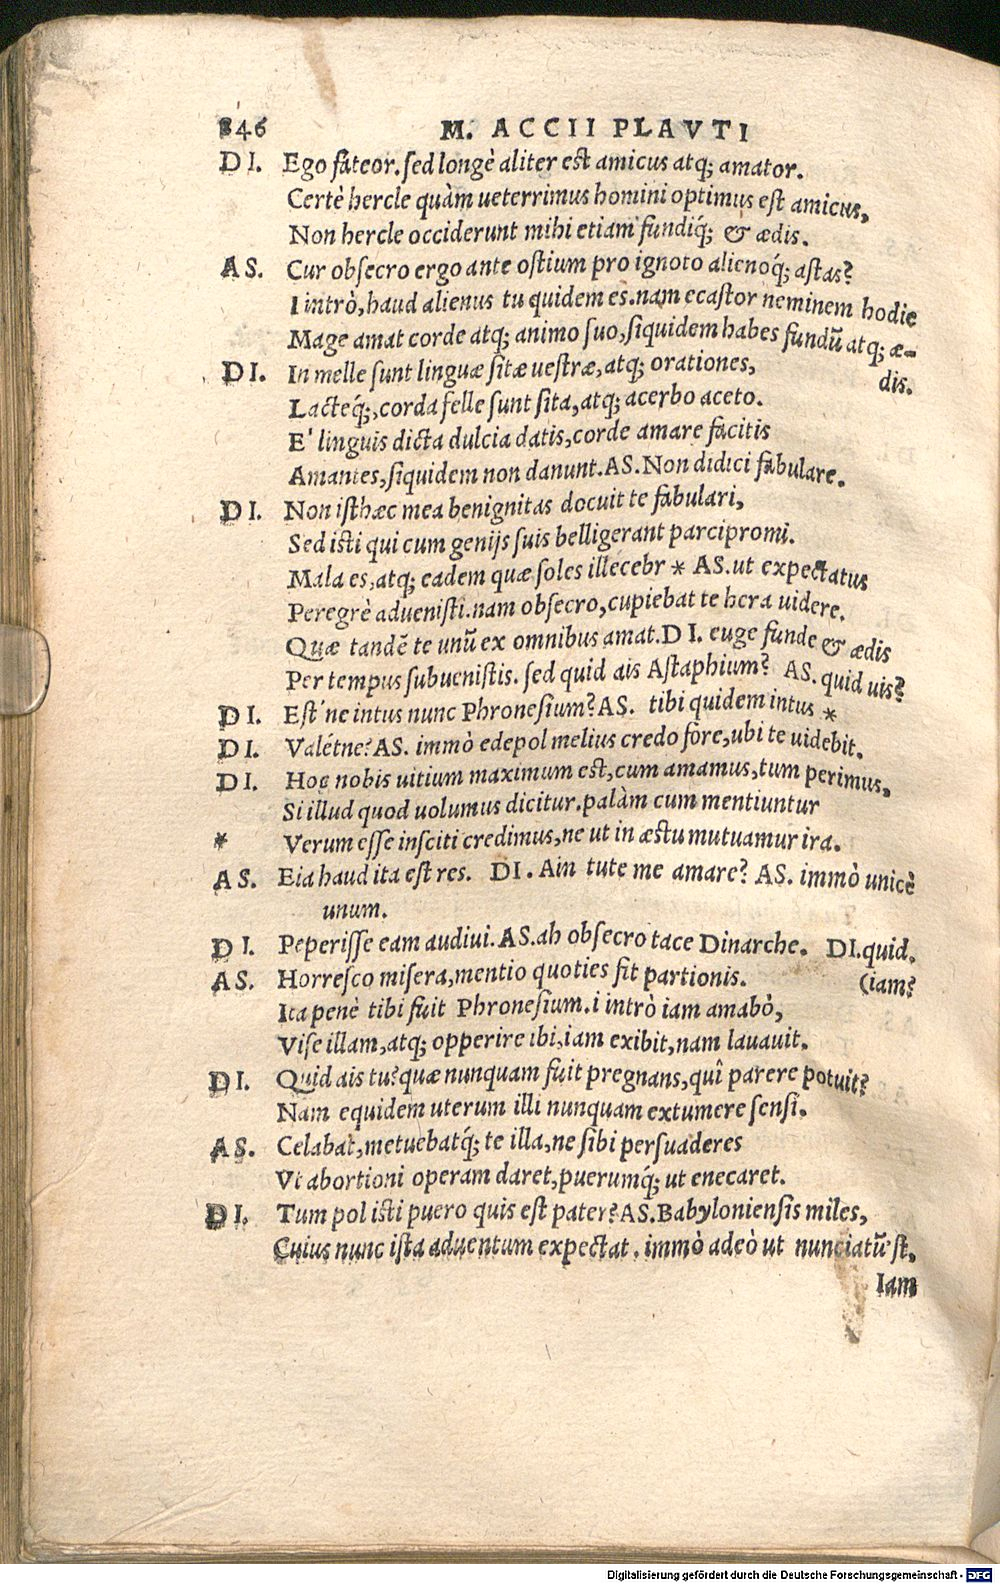 846 M. ACCII PLAVTI
DI. Ego fateor. sed longè aliter est amicus atq; amator.
Certè hercle quàm ueterrimus homini optimus est amicus,
Non hercle occiderunt mihi etiam fundiq́; & ædis.
AS. Cur obsecro ergo ante ostium pro ignoto alienoq́; astas?
I intrò, haud alienus tu quidem es. nam ecastor neminem hodie
Mage amat corde atq; animo suo, siquidem habes fundũ atq; æ-
dis.
DI. In melle sunt linguæ sitæ uestræ, atq; orationes,
Lacteq́;, corda felle sunt sita, atq; acerbo aceto.
E' linguis dicta dulcia datis, corde amare facitis
Amantes, siquidem non danunt. AS. Non didici fabulare.
DI. Non isthæc mea benignitas docuit te fabulari,
Sed isti qui cum genijs suis belligerant parcipromi.
Mala es, atq; eadem quæ soles illecebr * AS. ut expectatus
Peregrè aduenisti. nam obsecro, cupiebat te hera uidere.
Quæ tandẽ te unũ ex omnibus amat. DI. euge funde & ædis
Per tempus subuenistis. sed quid ais Astaphium? AS. quid uis?
DI. Est'ne intus nunc Phronesium? AS. tibi quidem intus *
DI. Valétne? AS. immò edepol melius credo fore, ubi te uidebit.
DI. Hoc nobis uitium maximum est, cum amamus, tum perimus,
Si illud quod uolumus dicitur. palàm cum mentiuntur
* Verum esse insciti credimus, ne ut in æstu mutuamur ira.
AS. Eia haud ita est res. DI. Ain tute me amare? AS. immò unicè
unum.
DI. Peperisse eam audiui. AS. ah obsecro tace Dinarche. DI. quid.
AS. Horresco misera, mentio quoties fit partionis. (iam?
Ita penè tibi fuit Phronesium. i intrò iam amabò,
Vise illam, atq; opperire ibi, iam exibit, nam lauauit.
DI. Quid ais tu? quæ nunquam fuit pregnans, quî parere potuit?
Nam equidem uterum illi nunquam extumere sensi.
AS. Celabat, metuebatq́; te illa, ne sibi persuaderes
Vt abortioni operam daret, puerumq́; ut enecaret.
DI. Tum pol isti puero quis est pater? AS. Babyloniensis miles,
Cuius nunc ista aduentum expectat. immò adeò ut nunciatũ'st,
Iam
Digitalisierung gefördert durch die Deutsche Forschungsgemeinschaft - DFG